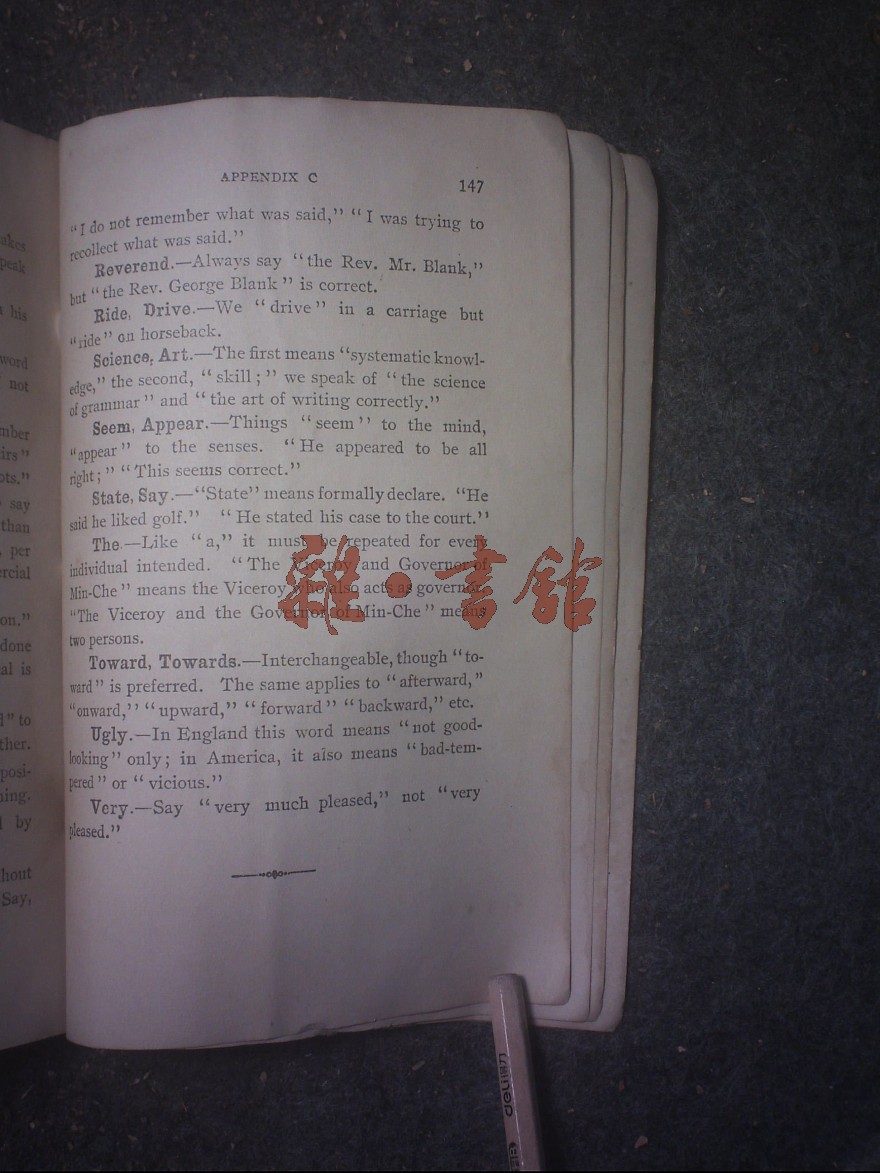 akes
peak
his
word
not
mber
irs"
ots."
say
than
, per
ercial
on."
done
al is
l" to
ther.
posi-
ning.
l by
hout
Say,
APPENDIX C
147
"I do not remember what was said," "I was trying to
recollect what was said."
Reverend.—Always say "the Rev. Mr. Blank,"
but "the Rev. George Blank" is correct.
Ride, Drive.—We "drive" in a carriage but
"ride" on horseback.
Science, Art.—The first means "systematic knowl-
edge," the second, "skill;" we speak of "the science
of grammar" and "the art of writing correctly."
Seem, Appear.—Things "seem" to the mind,
"appear" to the senses. "He appeared to be all
right;" "This seems correct."
State, Say.—"State" means formally declare. "He
said he liked golf." "He stated his case to the court."
The.—Like "a," it must be repeated for every
individual intended. "The Viceroy and Governor of
Min-Che" means the Viceroy who also acts as governor.
"The Viceroy and the Governor of Min-Che" means
two persons.
Toward, Towards.—Interchangeable, though "to-
ward" is preferred. The same applies to "afterward,"
"onward," "upward," "forward" "backward," etc.
Ugly.—In England this word means "not good-
looking" only; in America, it also means "bad-tem-
pered" or "vicious."
Very.—Say "very much pleased," not "very
pleased."
雜·書館
deli